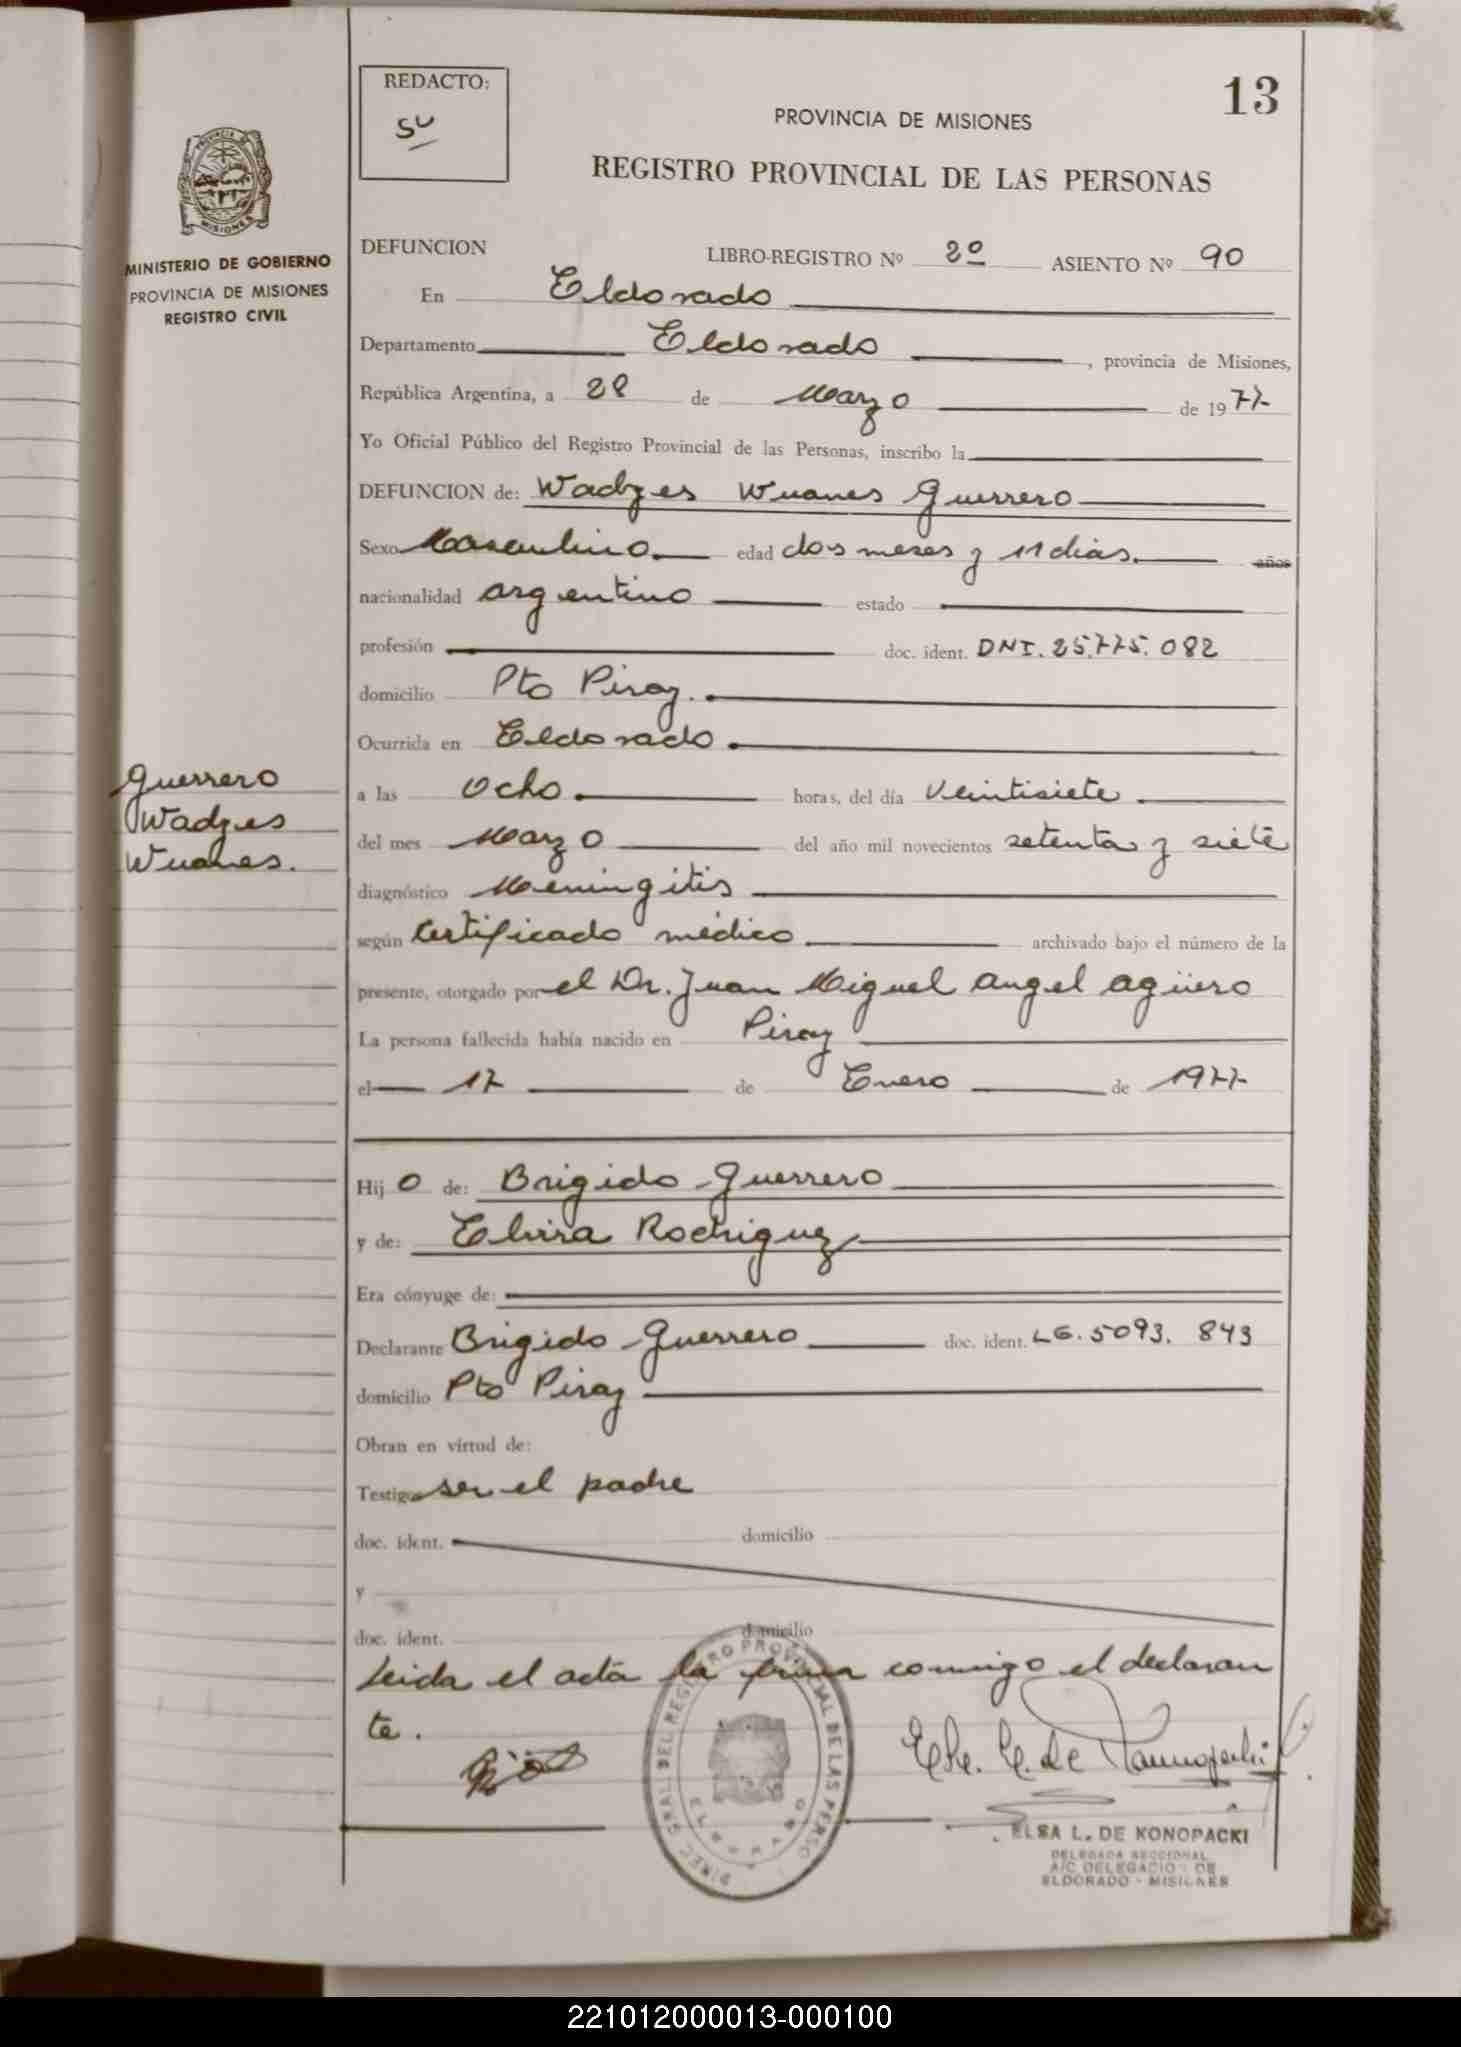 REDACTO:
13
PROVINCIA DE MISIONES
REGISTRO PROVINCIAL DE LAS PERSONAS
MISIONES
MINISTERIO DE GOBIERNO
PROVINCIA DE MISIONES
REGISTRO CIVIL
DEFUNCION LIBRO-REGISTRO Nº 2º ASIENTO Nº 90
En Eldorado
Departamento Eldorado, provincia de Misiones,
República Argentina, a 28 de Marzo de 1977
Yo Oficial Público del Registro Provincial de las Personas, inscribo la
DEFUNCION de: Wadyes Wuanes Guerrero
Sexo Masculino. edad dos meses y 11 dias. años
nacionalidad argentino estado
profesión doc. ident. DNI. 25.775.082
domicilio Pto Piray.
Ocurrida en Eldorado.
Guerrero
Wadyes
Wuanes.
a las Ocho. horas, del día Veintisiete
del mes Marzo del año mil novecientos setenta y siete
diagnóstico Meningitis
según Certificado médico archivado bajo el número de la
presente, otorgado por el Dr. Juan Miguel Angel Agüero
La persona fallecida había nacido en Piray
el 17 de Enero de 1977
Hijo de: Brigido Guerrero
y de: Elvira Rodriguez
Era cónyuge de:
Declarante Brigido Guerrero doc. ident. LE. 5093. 843
domicilio Pto Piray
Obran en virtud de:
Testigos ser el padre
doc. ident. domicilio
y
doc. ident. domicilio
Leida el acta la firma conmigo el declaran
te.
DIREC. GRAL. DEL REGISTRO PROVINCIAL DE LAS PERSO
ELDORADO
ELSA L. DE KONOPACKI
DELEGADA SECCIONAL
A/C DELEGACION DE
ELDORADO - MISIONES
221012000013-000100